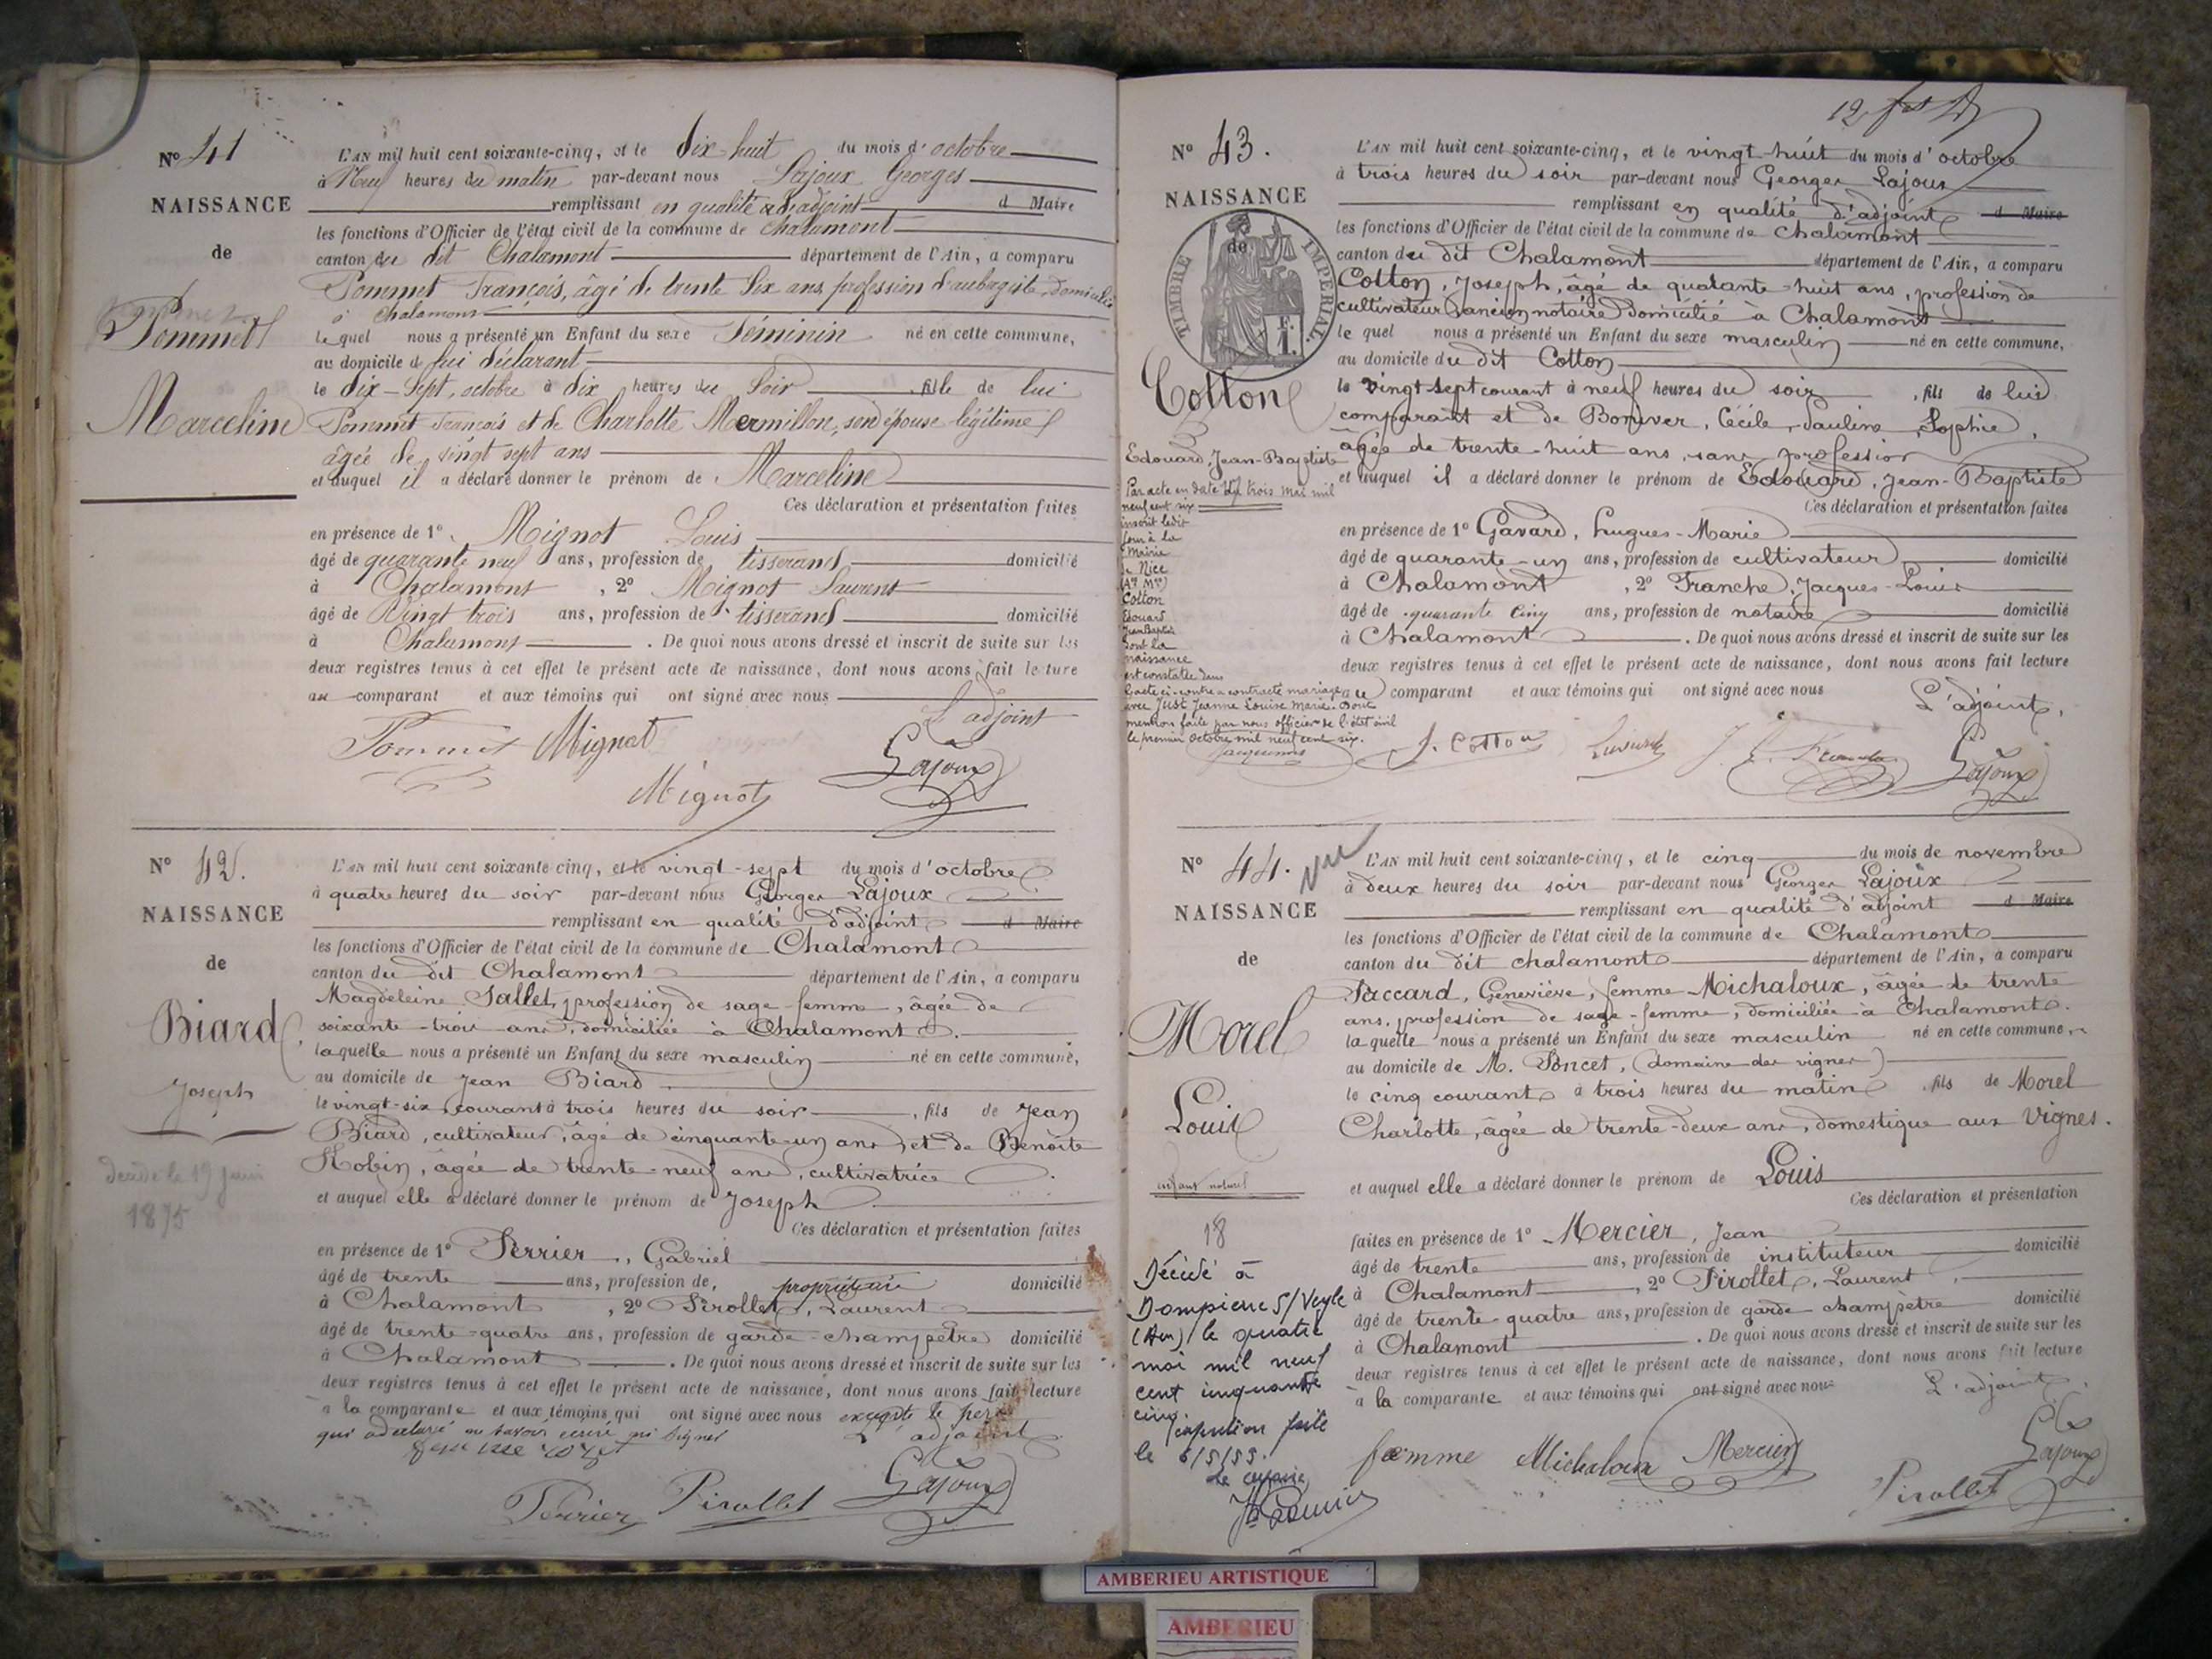 Nº 41
NAISSANCE
de
Pommet
Marceline
L'AN mil huit cent soixante-cinq, et le dix-huit du mois d'octobre
à Neuf heures du matin par-devant nous Lajoux Georges
remplissant en qualité d'adjoint d Maire
les fonctions d'Officier de l'état civil de la commune de Chalamont
canton du dit Chalamont département de l'Ain, a comparu
Pommet François, âgé de trente six ans, profession d'aubergiste, domicilié
à Chalamont
lequel nous a présenté un Enfant du sexe Féminin né en cette commune,
au domicile de lui déclarant
le dix-sept, octobre à dix heures du soir fille de lui
Pommet François et de Charlotte Mermillon, son épouse légitime
âgée de vingt sept ans
et auquel il a déclaré donner le prénom de Marceline
Ces déclaration et présentation faites
en présence de 1º Mignot Louis
âgé de quarante neuf ans, profession de tisserand domicilié
à Chalamont, 2º Mignot Laurent
âgé de Vingt trois ans, profession de tisserand domicilié
à Chalamont. De quoi nous avons dressé et inscrit de suite sur les
deux registres tenus à cet effet le présent acte de naissance, dont nous avons fait lecture
au comparant et aux témoins qui ont signé avec nous
L'adjoint
Pommet Mignot
Mignot Lajoux
Nº 42.
NAISSANCE
de
Biard
Joseph
décédé le 19 juin
1875
L'AN mil huit cent soixante-cinq, et le vingt-sept du mois d'octobre
à quatre heures du soir par-devant nous Georges Lajoux
remplissant en qualité d'adjoint d Maire
les fonctions d'Officier de l'état civil de la commune de Chalamont
canton du dit Chalamont département de l'Ain, a comparu
Magdeleine Sallet, profession de sage-femme, âgée de
soixante-trois ans, domiciliée à Chalamont.
laquelle nous a présenté un Enfant du sexe masculin né en cette commune,
au domicile de Jean Biard
le vingt-six courant à trois heures du soir, fils de Jean
Biard, cultivateur, âgé de cinquante-un ans, et de Benoite
Robin, âgée de trente-neuf ans, cultivatrice.
et auquel elle a déclaré donner le prénom de Joseph
Ces déclaration et présentation faites
en présence de 1º Perrier, Gabriel
âgé de trente ans, profession de, propriétaire domicilié
à Chalamont, 2º Pirollet, Laurent
âgé de trente-quatre ans, profession de garde-champêtre domicilié
à Chalamont. De quoi nous avons dressé et inscrit de suite sur les
deux registres tenus à cet effet le présent acte de naissance, dont nous avons fait lecture
à la comparante et aux témoins qui ont signé avec nous excepté le
qui a déclaré ne savoir écrire ni signer
L'adjoint
Perrier Pirollet Lajoux
Nº 43.
NAISSANCE
de
TIMBRE IMPERIAL
Cotton
Edouard, Jean-Baptiste
Par acte en date du trois mai mil
neuf cent six
inscrit ledit
jour à la
Mairie
de Nice
(Aes Mes)
Cotton
Edouard
Jean Baptiste
dont la
naissance
est constatée dans
l'acte ci-contre a contracté mariage
avec Just Jeanne Louise Marie. Dont
mention faite par nous officier de l'état civil
le premier Octobre mil neuf cent six.
L'AN mil huit cent soixante-cinq, et le vingt-huit du mois d'octobre
à trois heures du soir par-devant nous Georges Lajoux
remplissant en qualité d'adjoint d Maire
les fonctions d'Officier de l'état civil de la commune de Chalamont
canton du dit Chalamont département de l'Ain, a comparu
Cotton, Joseph, âgé de quarante-huit ans, profession de
cultivateur ancien notaire domicilié à Chalamont
le quel nous a présenté un Enfant du sexe masculin né en cette commune,
au domicile du dit Cotton
le vingt-sept courant à neuf heures du soir, fils de lui
comparant et de Boniver, Cécile, Pauline, Sophie,
âgée de trente-huit ans, sans profession
et auquel il a déclaré donner le prénom de Edouard, Jean-Baptiste
Ces déclaration et présentation faites
en présence de 1º Gavard, Hugues-Marie
âgé de quarante-un ans, profession de cultivateur domicilié
à Chalamont, 2º Franche, Jacques-Louis
âgé de quarante cinq ans, profession de notaire domicilié
à Chalamont. De quoi nous avons dressé et inscrit de suite sur les
deux registres tenus à cet effet le présent acte de naissance, dont nous avons fait lecture
au comparant et aux témoins qui ont signé avec nous
L'adjoint,
J. Cotton Lajoux
Nº 44. vu
NAISSANCE
de
Morel
Louis
enfant naturel
18
Décédé à
Dompierre S/Veyle
(Ain) le quatre
mai mil neuf
cent cinquante
cinq
le 6/5/55.
Le
L'AN mil huit cent soixante-cinq, et le cinq du mois de novembre
à deux heures du soir par-devant nous Georges Lajoux
remplissant en qualité d'adjoint d Maire
les fonctions d'Officier de l'état civil de la commune de Chalamont
canton du dit Chalamont département de l'Ain, a comparu
Paccard, Geneviève, femme Michaloux, âgée de trente
ans, profession de sage-femme, domiciliée à Chalamont.
la quelle nous a présenté un Enfant du sexe masculin né en cette commune,
au domicile de M. Poncet, (domaine des vignes)
le cinq courant à trois heures du matin, fils de Morel
Charlotte, âgée de trente-deux ans, domestique aux Vignes.
et auquel elle a déclaré donner le prénom de Louis
Ces déclaration et présentation
faites en présence de 1º Mercier, Jean
âgé de trente ans, profession de instituteur domicilié
à Chalamont, 2º Pirollet, Laurent,
âgé de trente-quatre ans, profession de garde champêtre domicilié
à Chalamont. De quoi nous avons dressé et inscrit de suite sur les
deux registres tenus à cet effet le présent acte de naissance, dont nous avons fait lecture
à la comparante et aux témoins qui ont signé avec nous
L'adjoint,
fæmme Michaloux Mercier Lajoux
Pirollet
AMBERIEU ARTISTIQUE
AMBERIEU